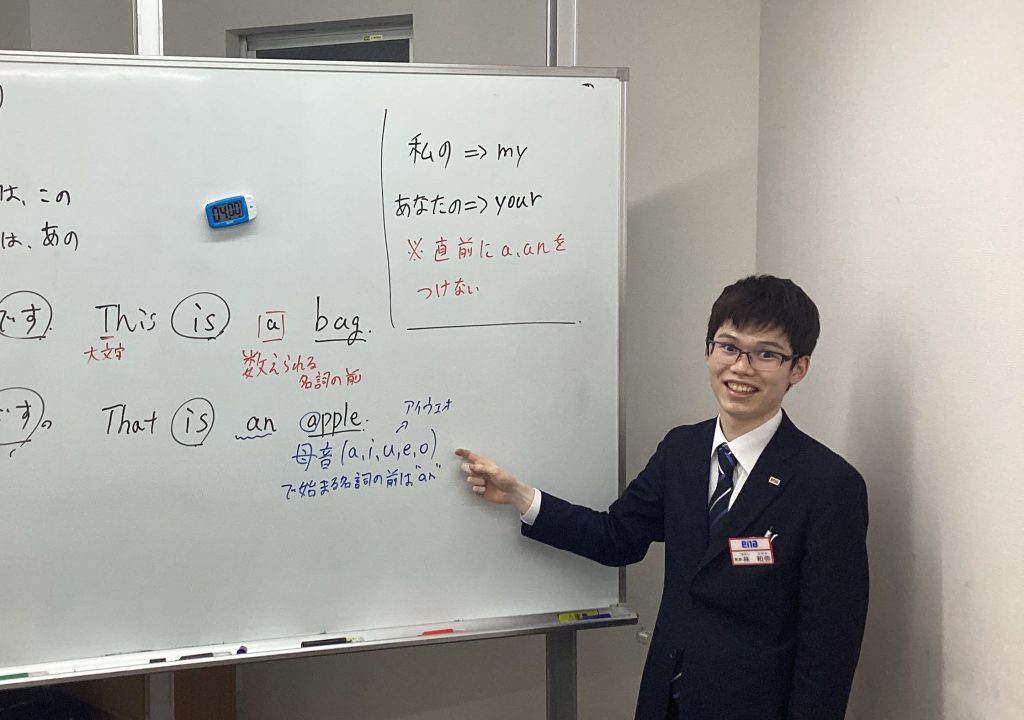 は、この
は、あの
04:00
私の => my
あなたの => your
※ 直前に a、anを
つけない
です. This is a bag.
大文字
数えられる
名詞の前
です。 That is an apple.
アイウエオ
母音 (a, i, u, e, o)
で始まる名詞の前は"an"
ena